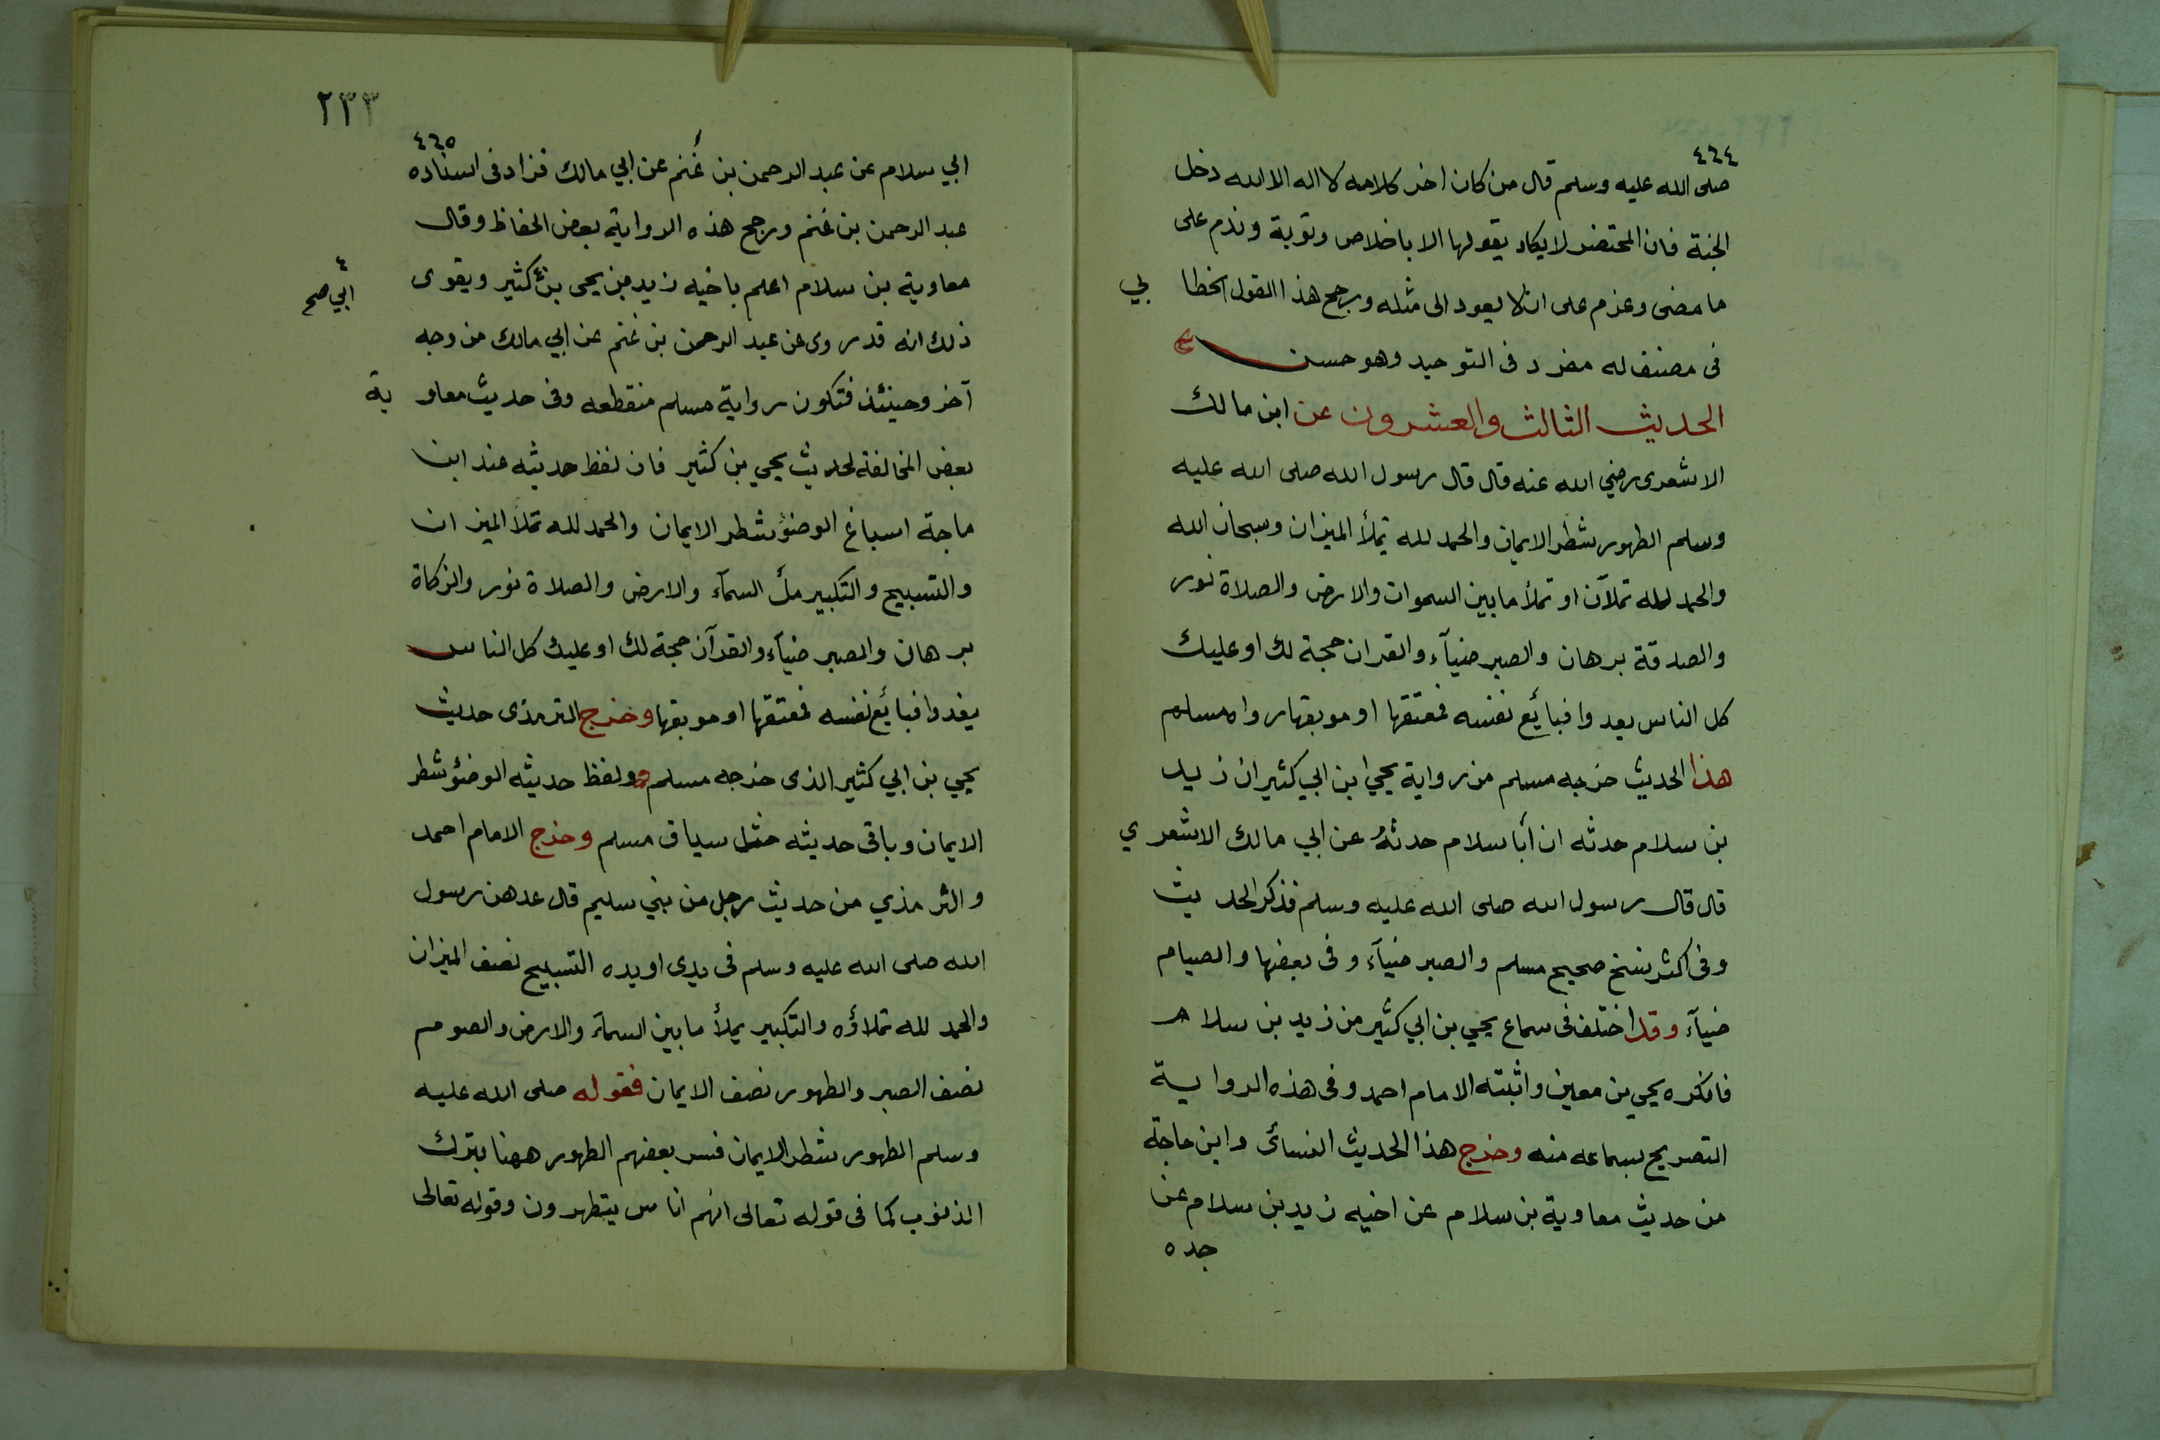 ٤٦٤
صلى الله عليه وسلم قال من كان اخر كلامه لا اله الا الله دخل
الجنة فان المحتضر لا يكاد يقولها الا باخلاص وتوبة وندم على
ما مضى وعزم على ان لا يعود الى مثله ورجح هذا القول الخطا بي
فى مصنف له مفرد فى التوحيد وهو حسن
الحديث الثالث والعشرون عن ابن مالك
الاشعرى رضي الله عنه قال قال رسول الله صلى الله عليه
وسلم الطهور شطر الايمان والحمد لله تملأ الميزان وسبحان الله
والحمد لله تملآن او تملأ ما بين السموات والارض والصلاة نور
والصدقة برهان والصبر ضيآء والقران حجة لك او عليك
كل الناس يعدوا فبائع نفسه فمعتقها او موبقها رواه مسلم
هذا الحديث خرجه مسلم من رواية يحيى ابن ابي كثير ان زيد
بن سلام حدثه ان أبا سلام حدثهُ عن ابي مالك الاشعر ي
قال قال رسول الله صلى الله عليه وسلم فذكر الحديث
وفى اكثر نسخ صحيح مسلم والصبر ضيآء وفى بعضها والصيام
ضيآء وقد اختلف فى سماع يحيى بن ابي كثير من زيد بن سلام
فانكره يحيى بن معين واثبته الامام احمد وفى هذه الرواية
التصريح بسماعه منه وخرج هذا الحديث النسائى وابن ماجة
من حديث معاوية بن سلام عن اخيه زيد بن سلام عن
جده
٢٣٣
٤٦٥
ابي سلام عن عبد الرحمن بن غُنم عن ابي مالك فزاد فى اسناده
عبد الرحمن بن غنم ورجح هذه الرواية بعض الحفاظ وقال
معاوية بن سلام اعلم باخيه زيد من يحيى بن٤ كثير ويقوى
٤
ابي صح
ذلك انه قد روى عن عبد الرحمن بن غنم عن ابي مالك من وجه
آخر وحينئذ فتكون رواية مسلم منقطعه وفى حديث معاو ية
بعض المخالفة لحديث يحيي بن كثير فان لفظ حديثه عند ابن
ماجة اسباغ الوضوء شطر الايمان والحمد لله تملأ الميزان
والتسبيح والتكبير ملء السمآء والارض والصلاة نور والزكاة
برهان والصبر ضيآء والقرآن حجة لك او عليك كل الناس
يغدوا فبائع نفسه فمعتقها او موبقها وخرج الترمذى حديث
يحيي بن ابي كثير الذى خرجه مسلم ولفظ حديثه الوضوء شطر
الايمان وباقى حديثه مثل سياق مسلم وخرج الامام احمد
والترمذي من حديث رجل من بني سليم قال عدهن رسول
الله صلى الله عليه وسلم فى يدى او يده التسبيح نصف الميزان
والحمد لله تملاؤه والتكبير يملأ ما بين السمآء والارض والصوم
نصف الصبر والطهور نصف الايمان فقوله صلى الله عليه
وسلم الطهور شطر الايمان فسر بعضهم الطهور ههنا بترك
الذنوب كما فى قوله تعالى انهم اناس يتطهرون وقوله تعالى